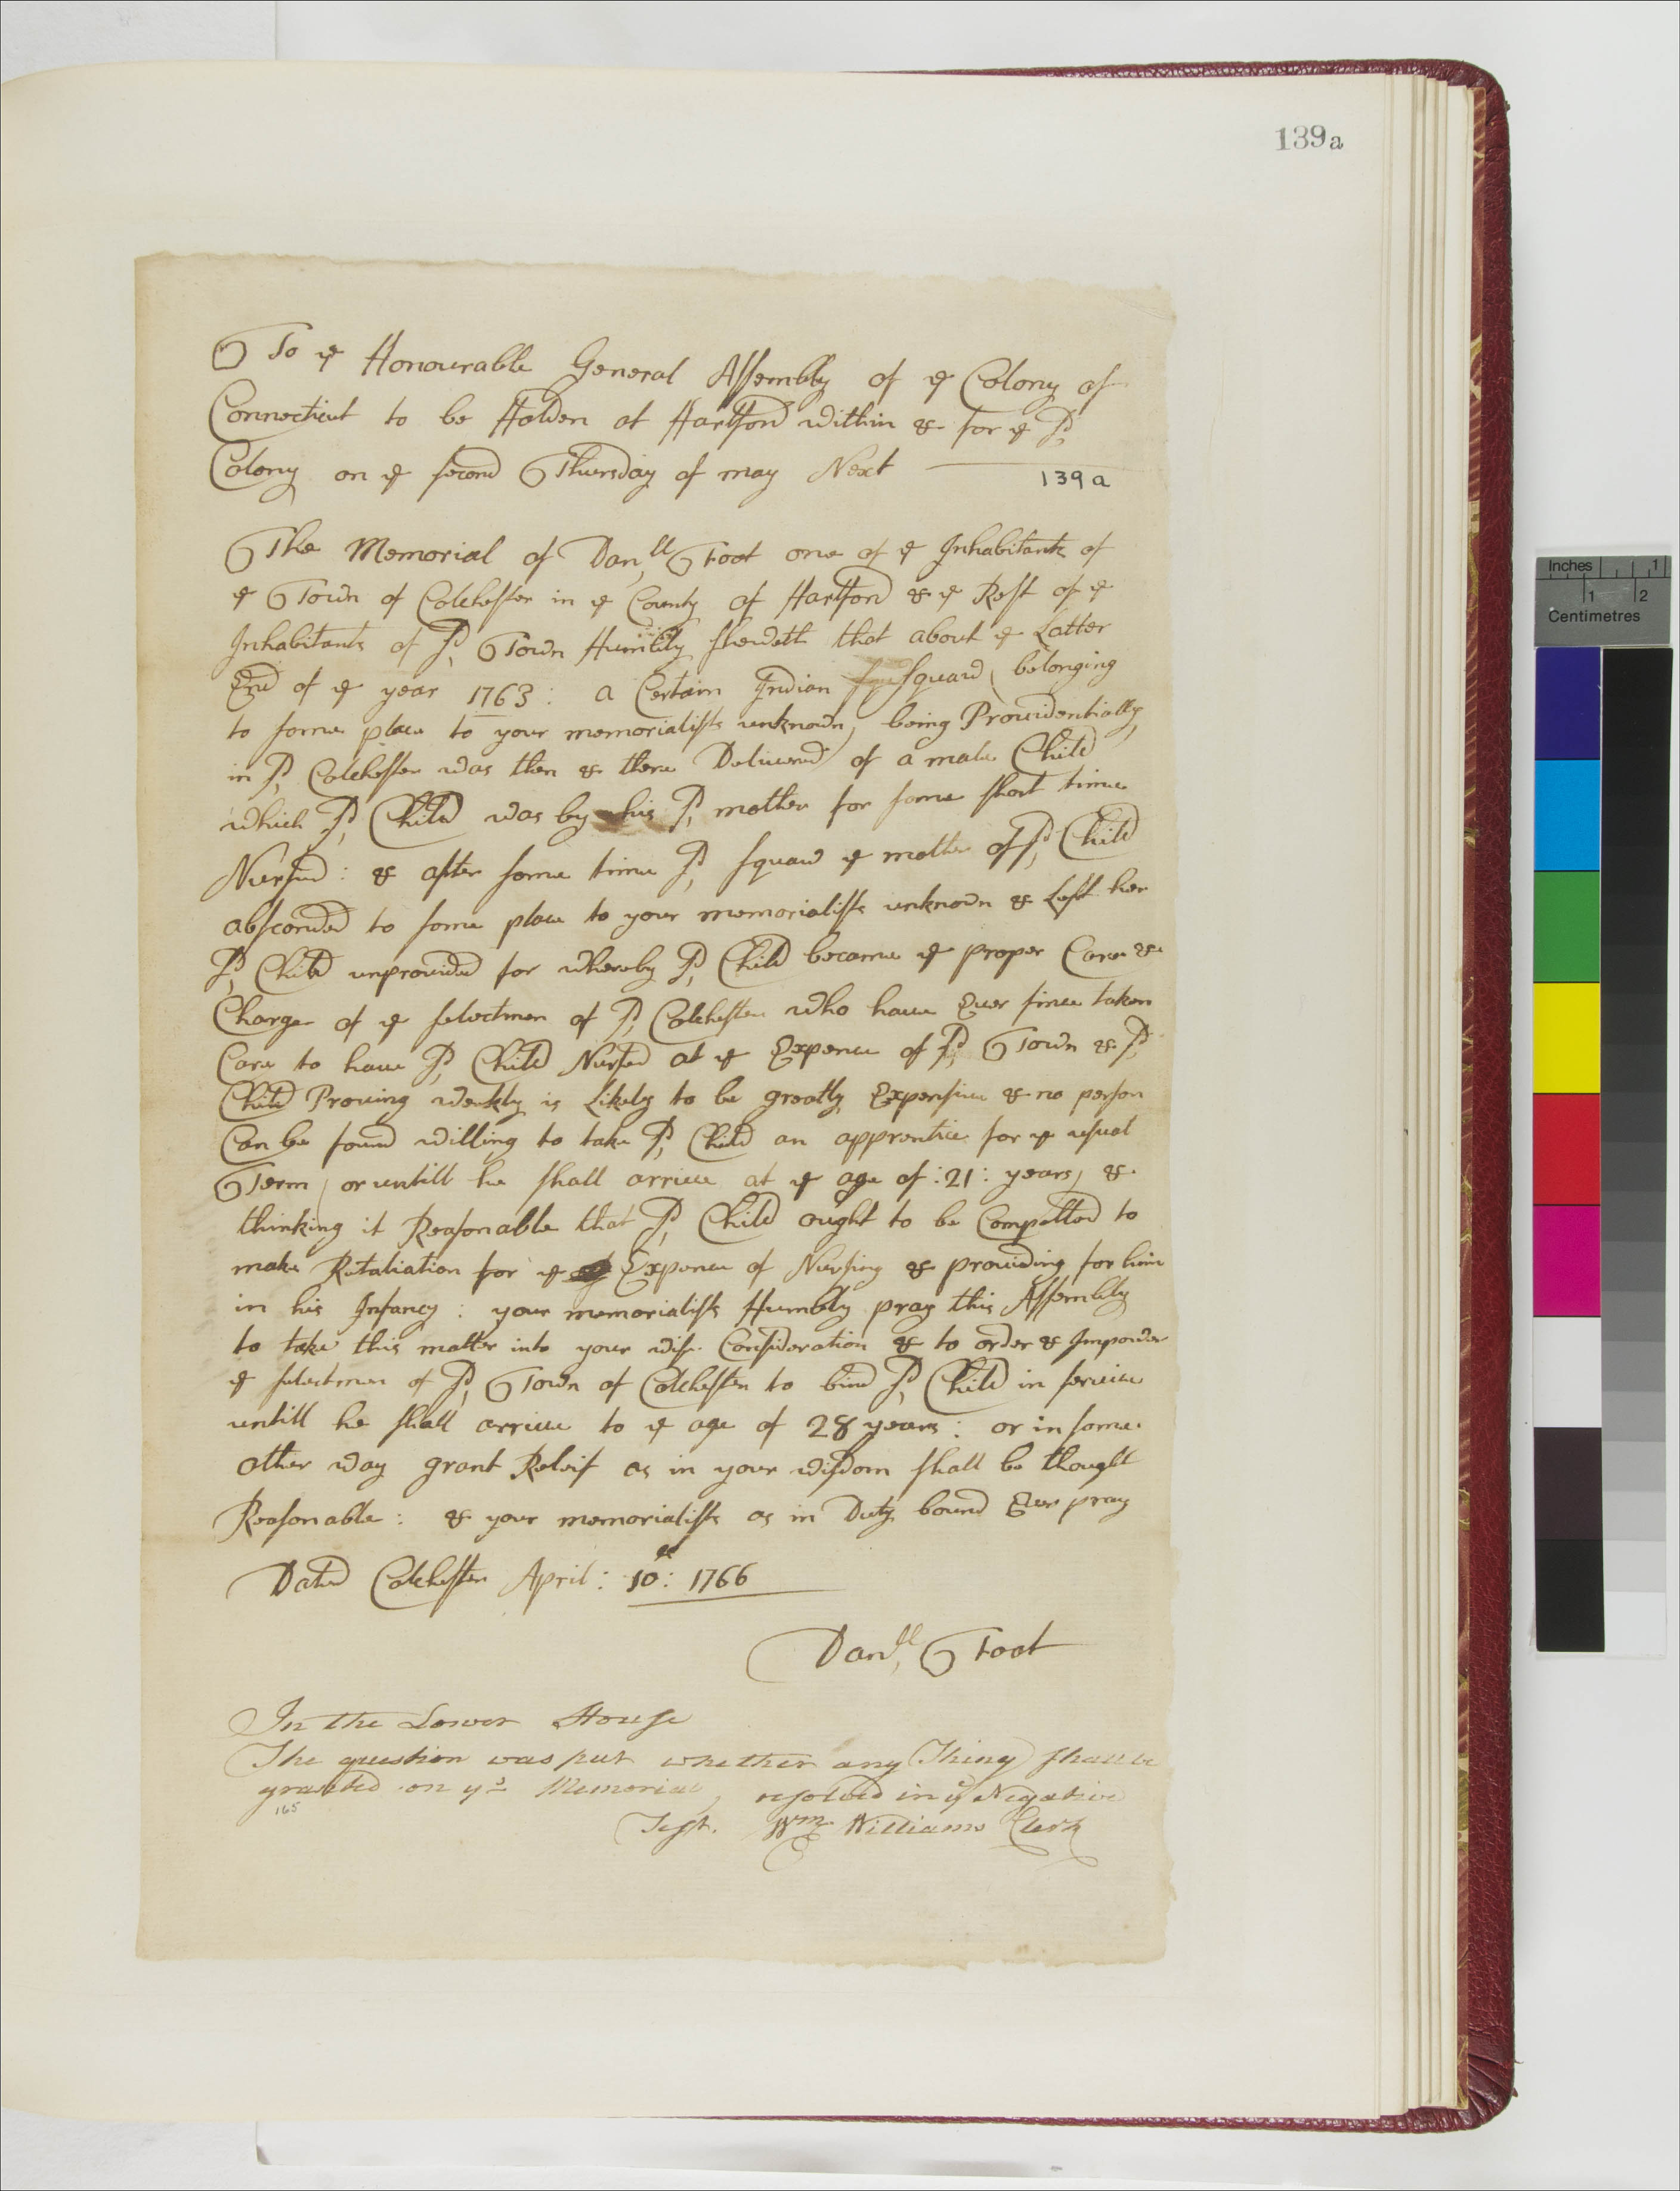 139a
To ye Honourable General Assembly of ye Colony of
Connecticut to be Holden at Hartford within & for ye Sd
Colony on ye second Thursday of may Next
139a
The Memorial of Danll Foot one of ye Inhabitants of
ye Town of Colchester in ye County of Hartford & ye Rest of ye
Inhabitants of Sd Town Humbly sheweth that about ye Latter
End of ye year 1763: a Certain Indian squaw, belonging
to some place to your memorialists unknown, being Providentially
in Sd Colchester was then & there Delivered of a male Child
which Sd Child was by his Sd mother for some short time
Nursed: & after some time Sd squaw ye mother of Sd Child
absconded to some place to your memorialists unknown & Left her
Sd Child unprovided for whereby Sd Child became ye proper Care &
Charge of ye selectmen of Sd Colchester who have Ever since taken
Care to have Sd Child Nursed at ye Expence of Sd Town & Sd
Child Proving weakly is Likely to be greatly Expensive & no person
Can be found willing to take Sd Child an apprentice for ye usual
Term, or untill he shall arrive at ye age of :21: years, &
thinking it Reasonable that Sd Child ought to be Compelled to
make Retaliation for ye Expence of Nursing & providing for him
in his Infancy: your memorialists Humbly pray this Assembly
to take this matter into your wise Consideration & to order & Impower
ye selectmen of Sd Town of Colchester to bind Sd Child in service
untill he shall arrive to ye age of 28 years: or in some
other way grant Releif as in your wisdom shall be thought
Reasonable: & your memorialists as in Duty bound Ever pray
Dated Colchester April: 10: 1766
Danll Foot
In the Lower House
The question was put whether any Thing shall be
granted on ys Memorial, resolved in ye Negative
165
Test. Wm Williams Clerk
Inches 1
1 2
Centimetres